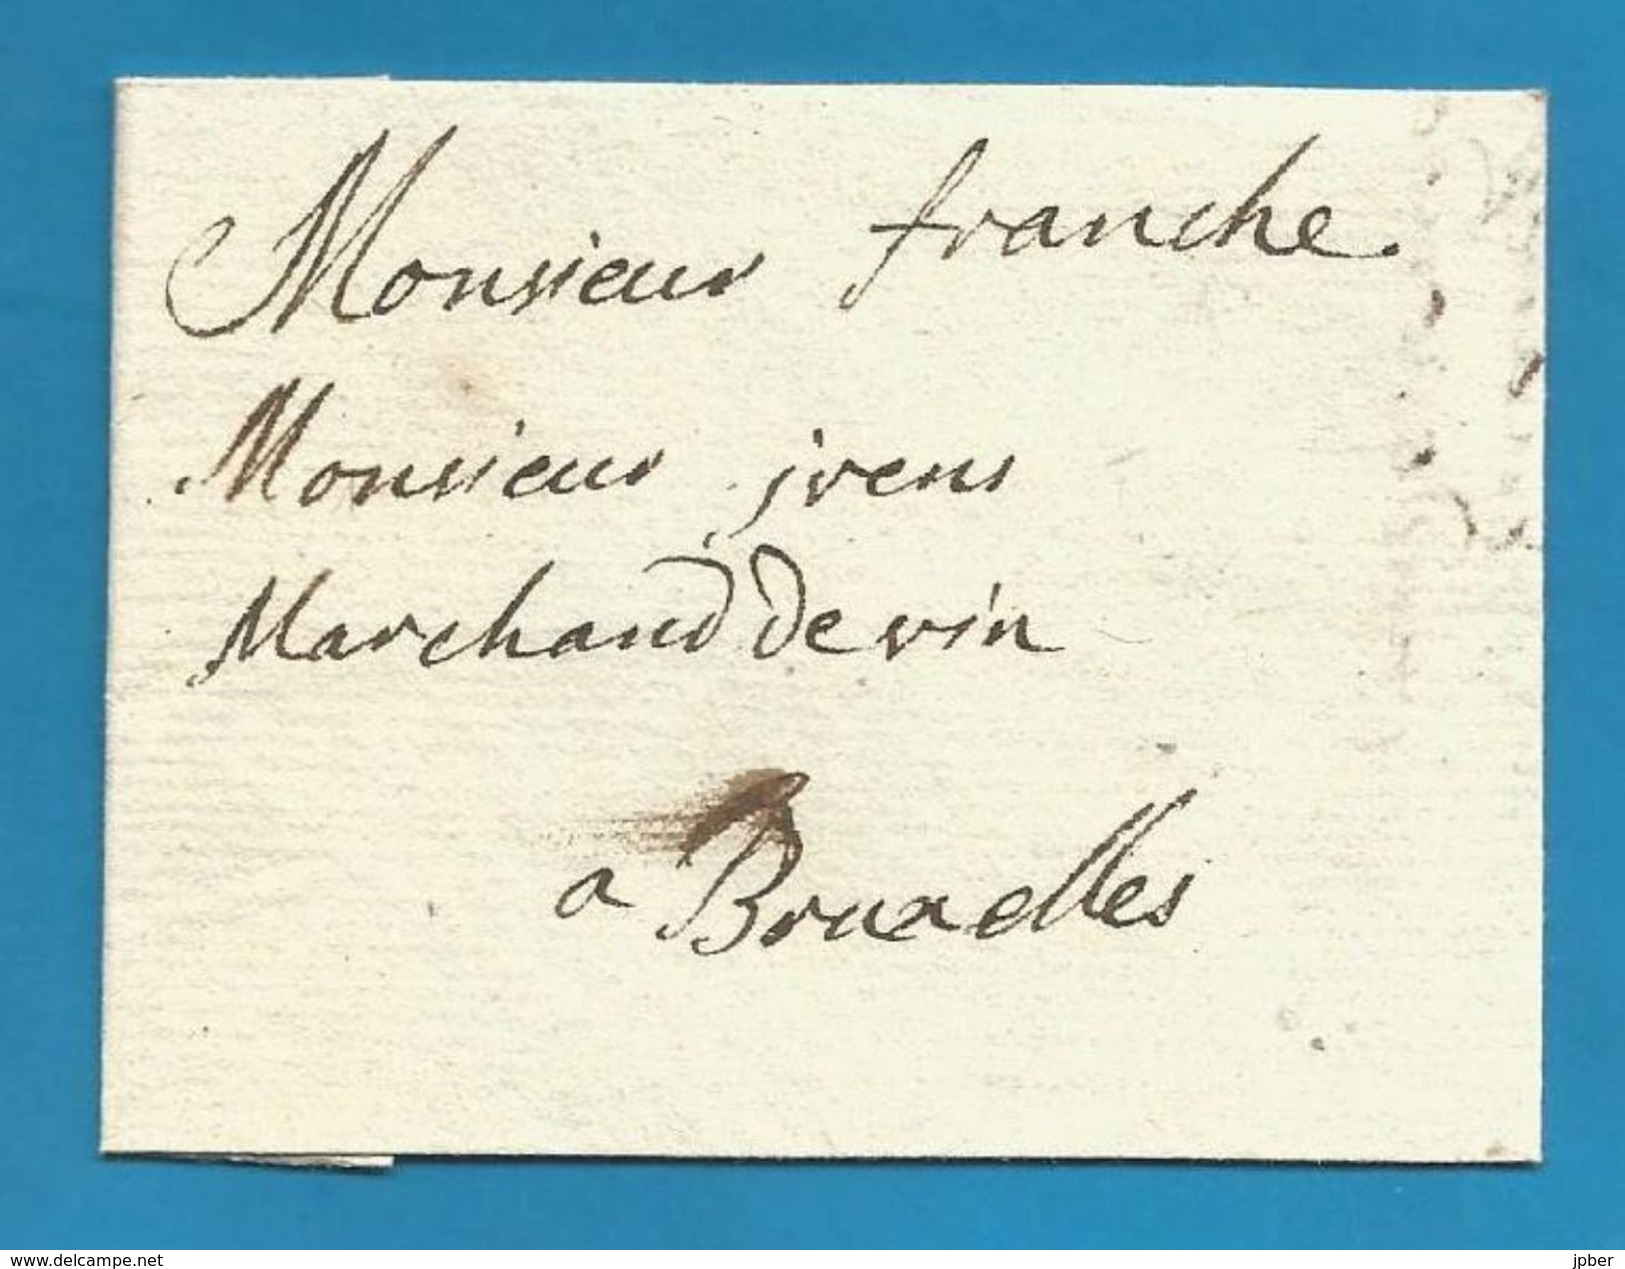 Monsieur franche.
Monsieur jrens
Marchand de vin
a Bruxelles
delcampe.net
jpber